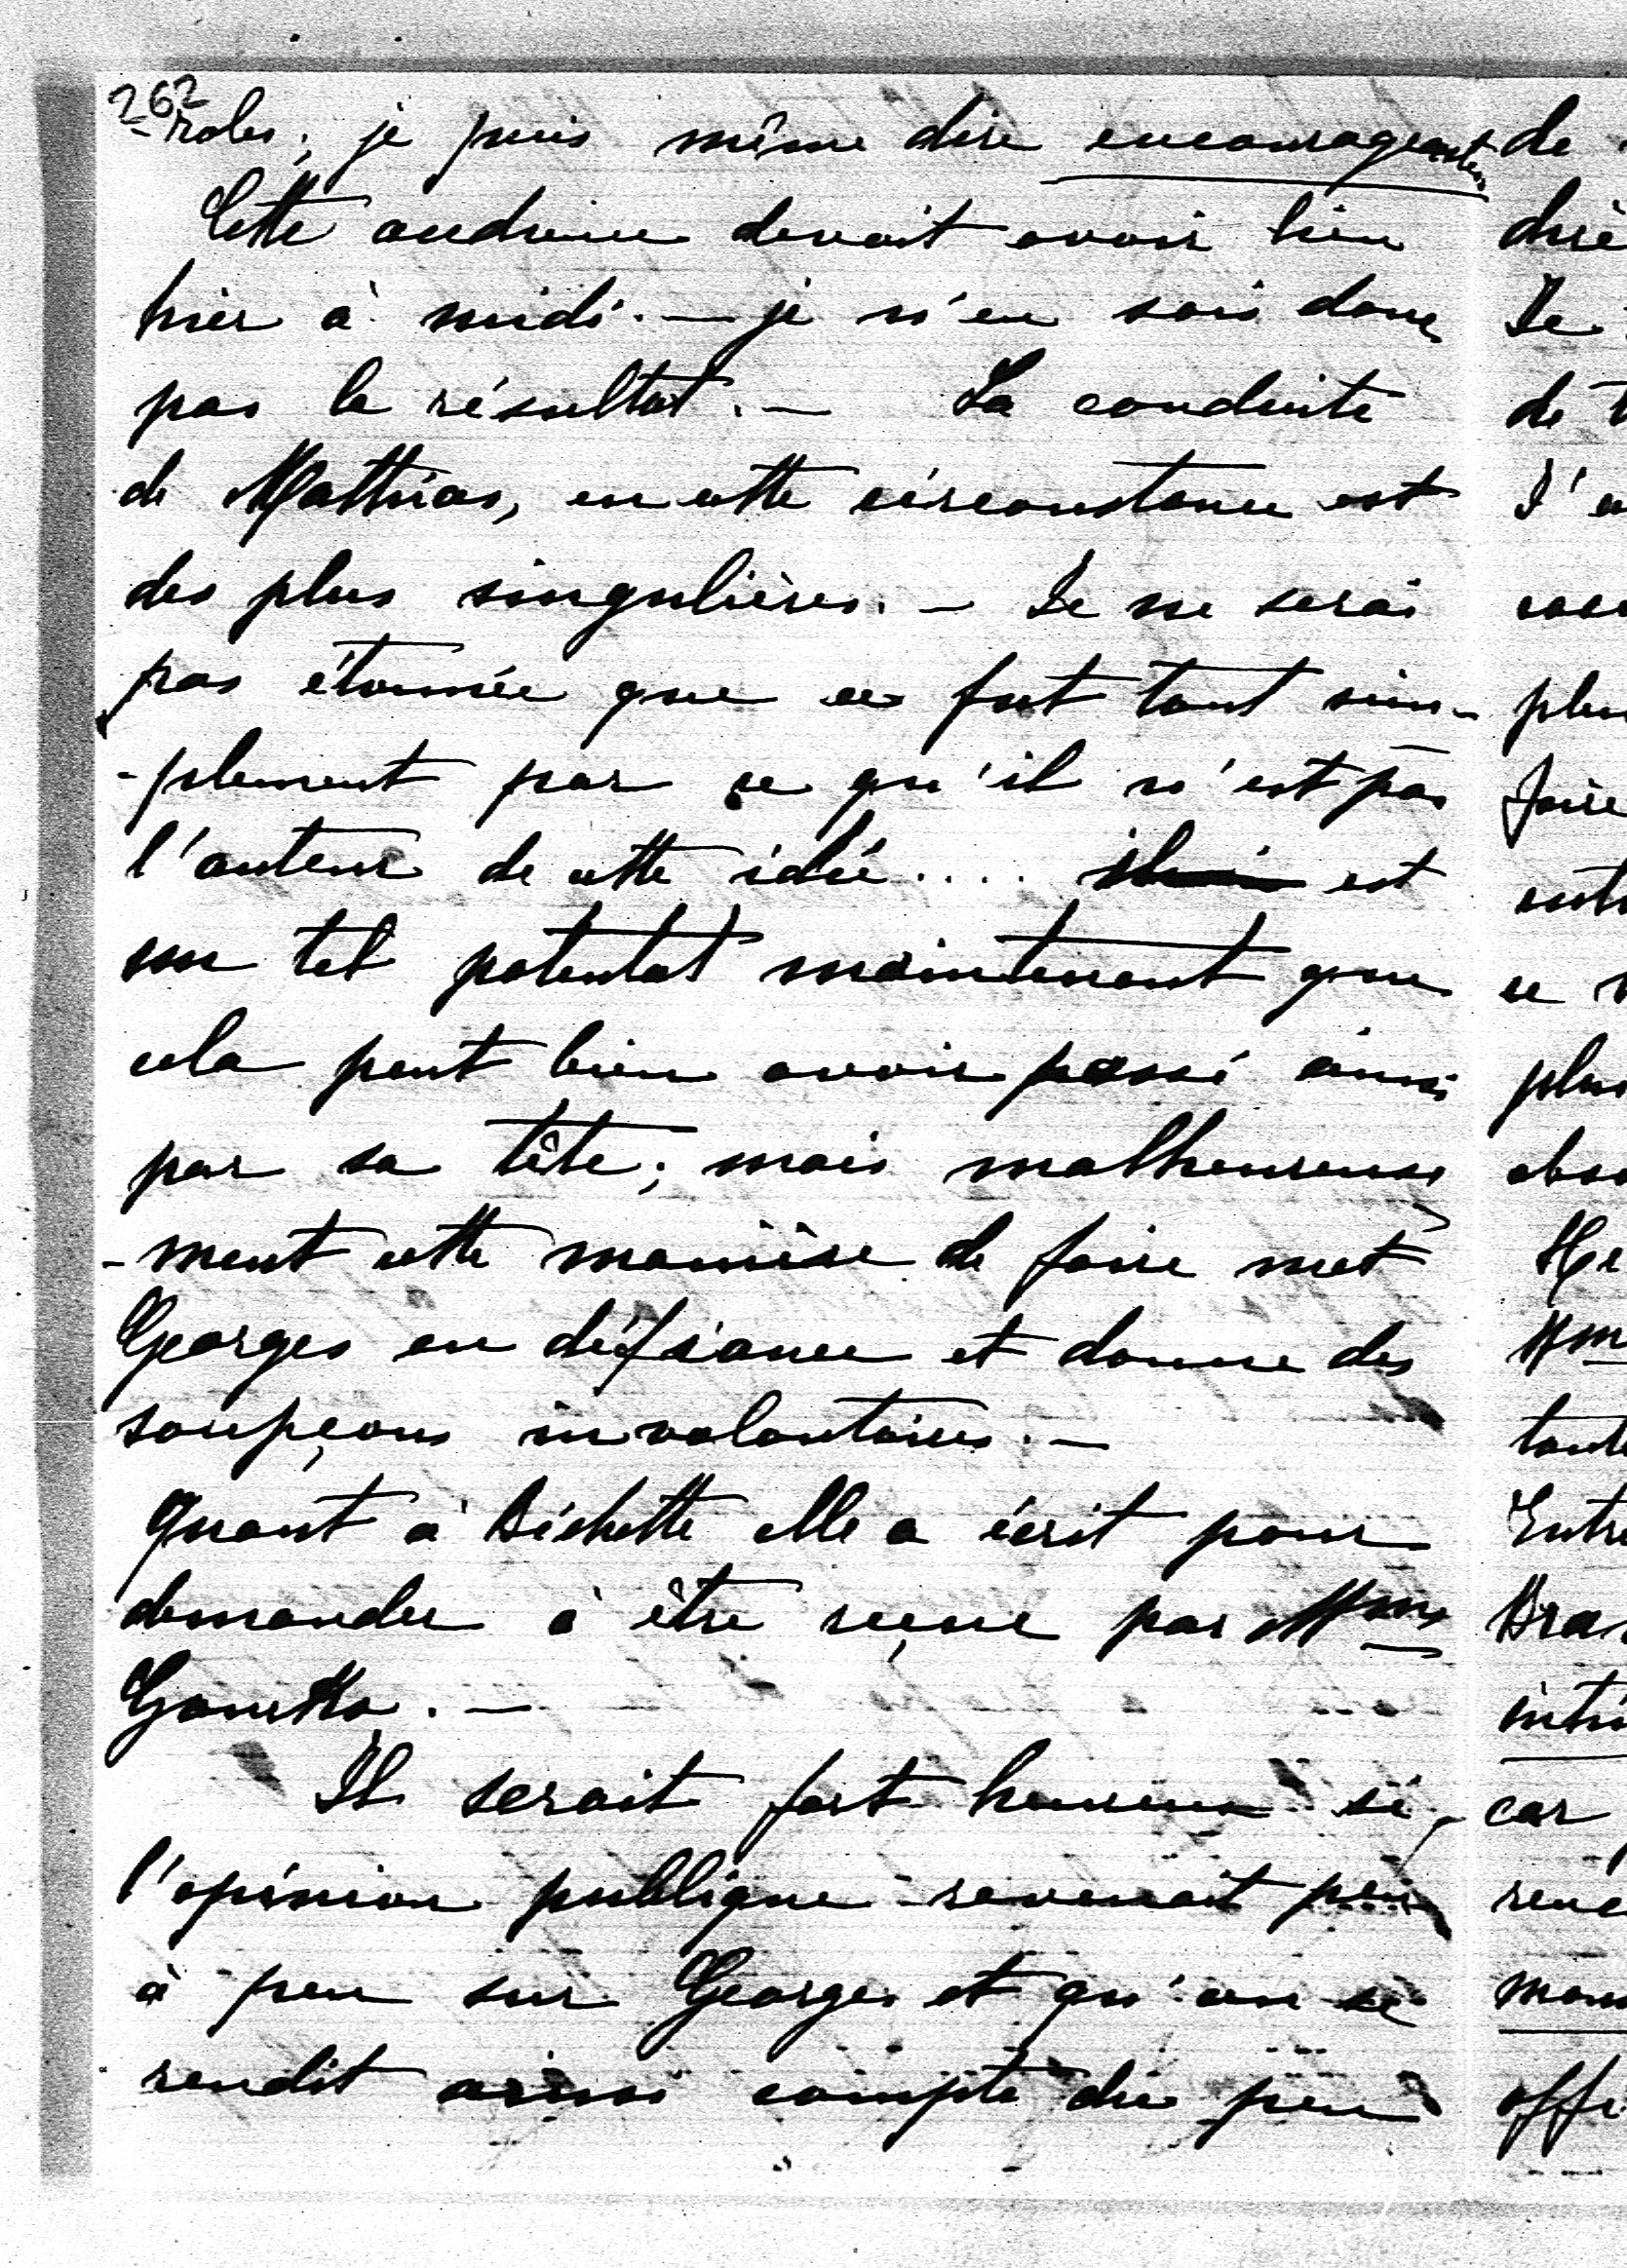 262
-roles; je puis même dire encourageantes
Cette audience devait avoir lieu
hier à midi. — je n'en sais donc
pas le résultat. — La conduite
de Matthias, en cette circonstance est
des plus singulières. — Je ne serai
pas étonnée que ce fut tout sim-
-plement par ce qu'il n'est pas
l'auteur de cette idée.... est
un tel potentat maintenant que
cela peut bien avoir passé ainsi
par sa tête; mais malheureuse
-ment cette manière de faire met
Georges en défiance et donne des
soupçons involontaires. —
Quant à Bichette elle a écrit pour
demander à être reçue par Mme
Il serait fort heureux si
l'opinion publique revenait peu
à peu sur Georges et qu'on se
rendit aussi compte du peu
de
dire
Je
de t
J'a
plus
faire
ce
plus
abso
Mme
toute
Entre
car
offi